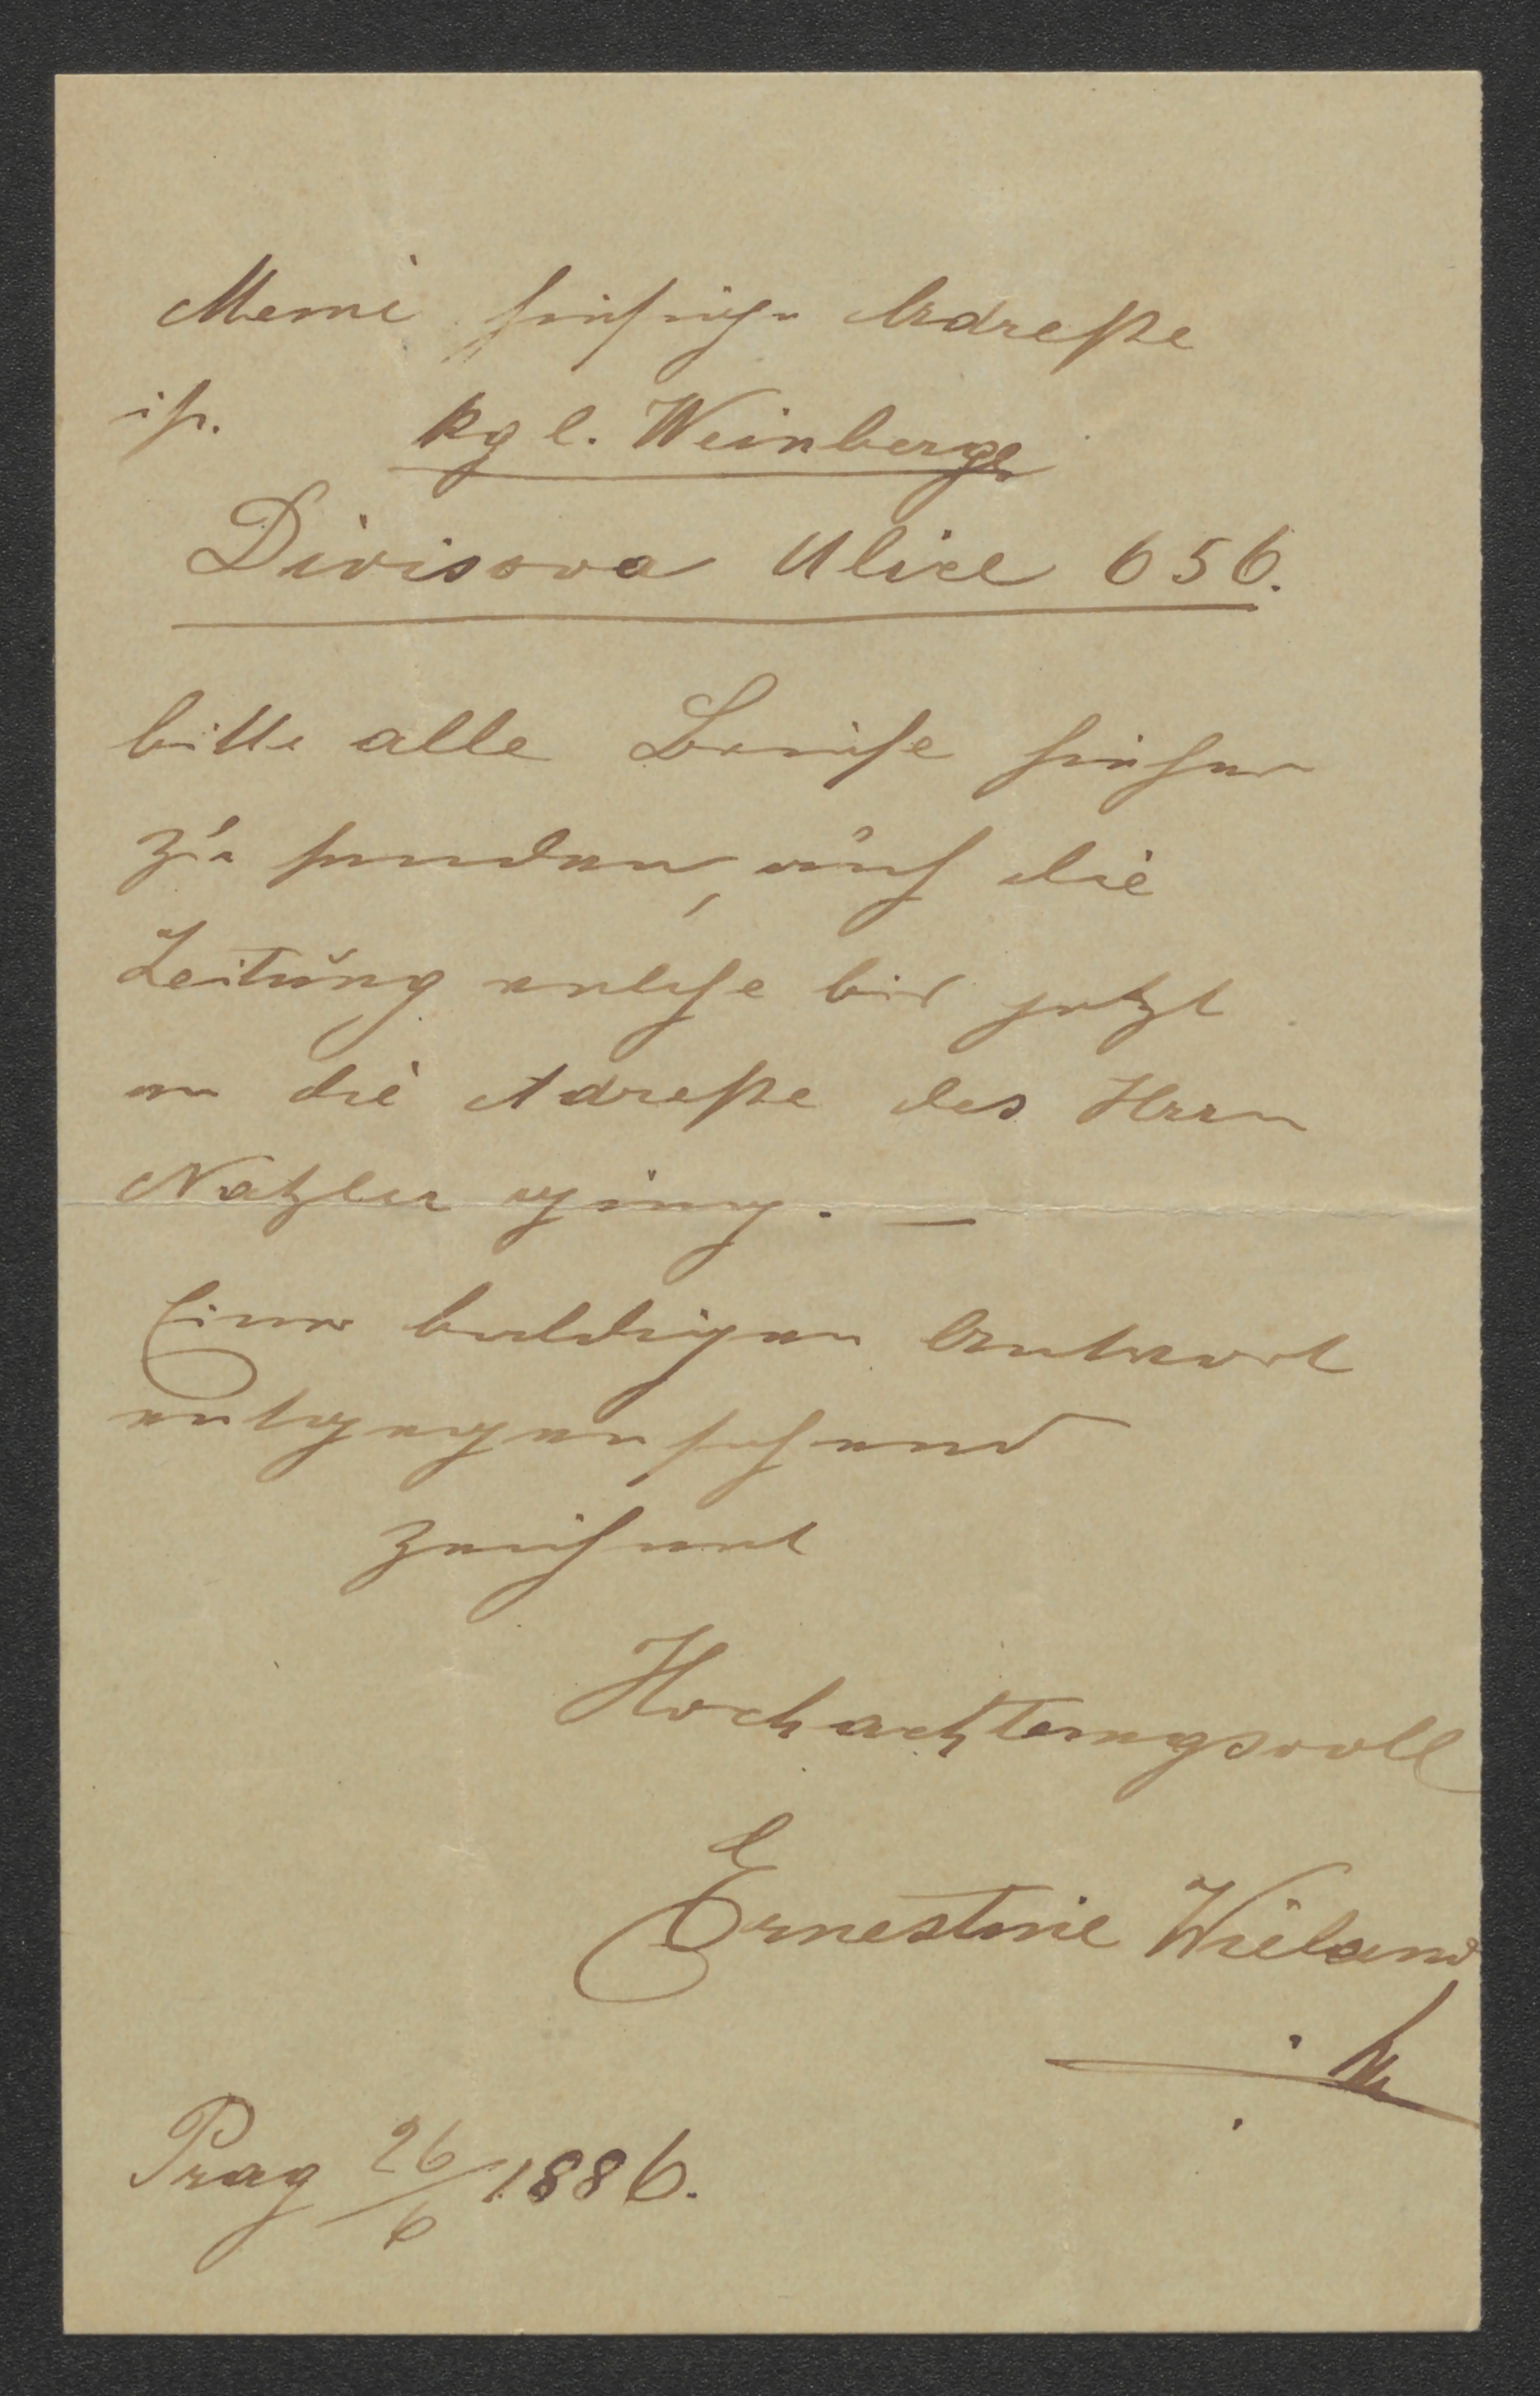 Meine hiesige Adreße
ist. kgl. Weinberge
Divisova Ulice 656.
bitte alle Briefe hieher
zu senden, auch die
Zeitung welche bis jetzt
an die Adreße des Herrn
Natzler ging. —
Einer baldigen Antwort
entgegensehend
zeichnet
Hochachtungsvoll
Ernestine Wieland
Prag 26/6 1886.